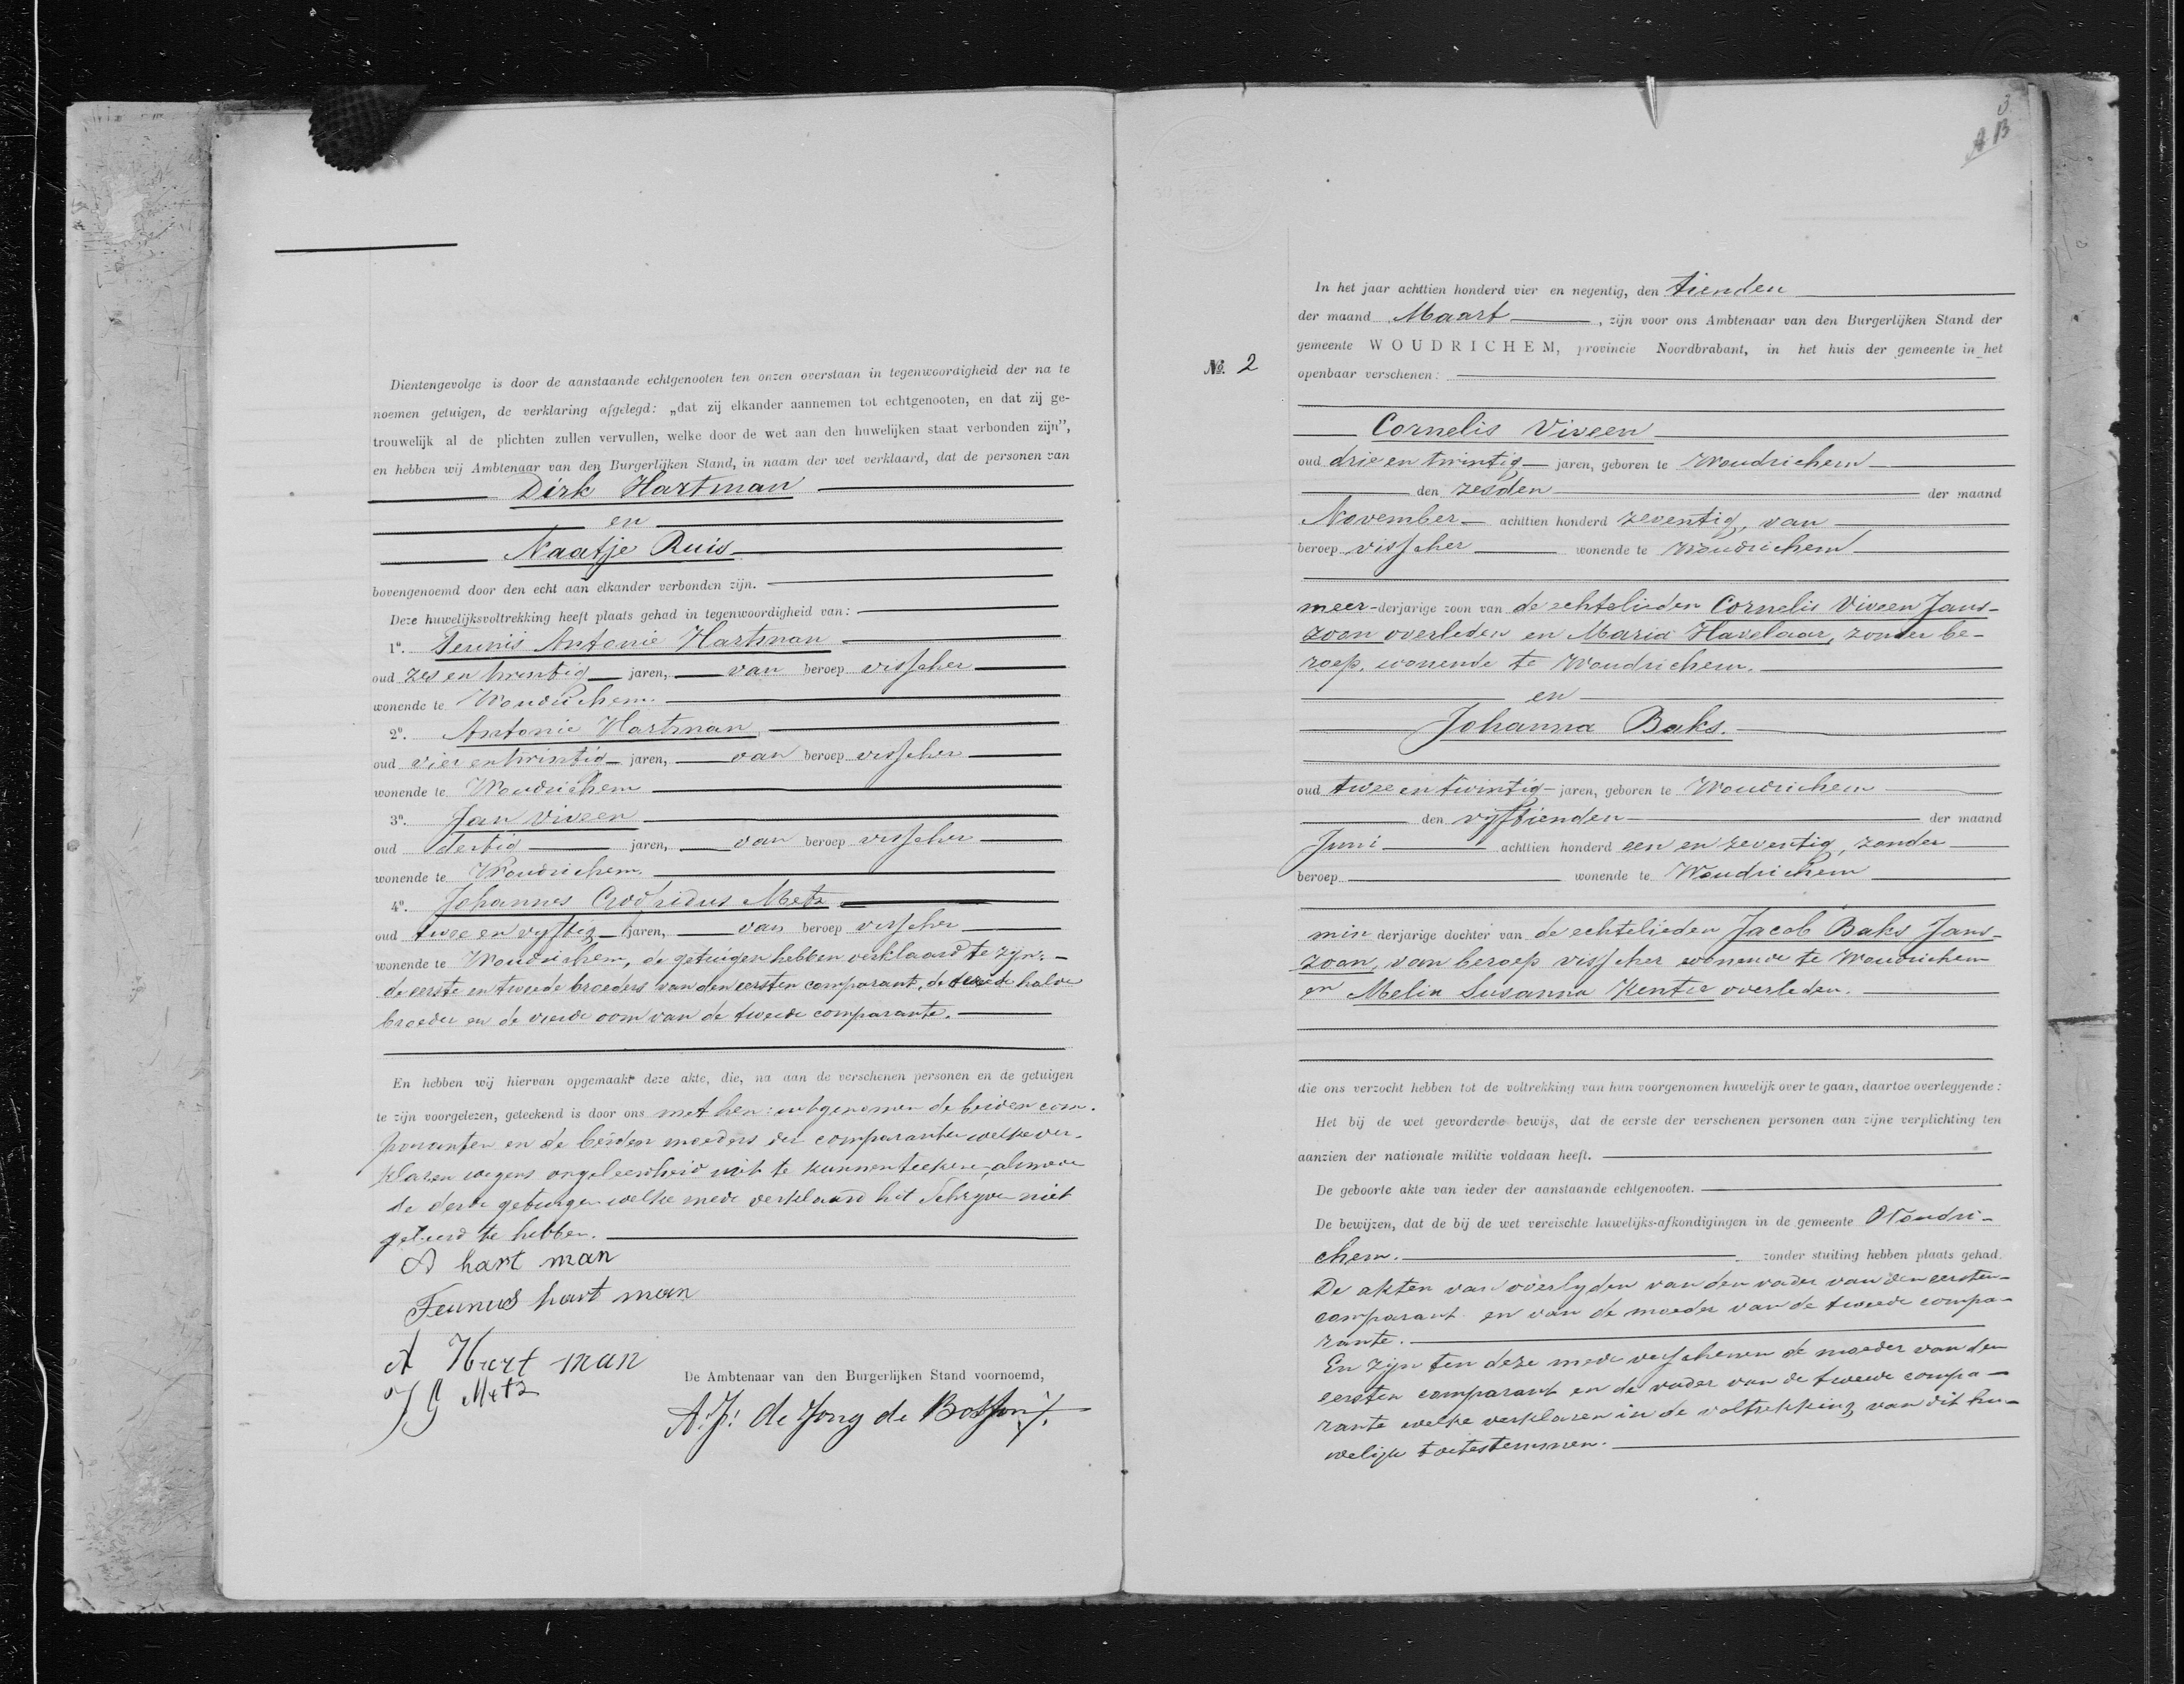 Dientengevolge is door de aanstaande echtgenooten ten onzen overstaan in tegenwoordigheid der na te
noemen getuigen, de verklaring afgelegd: „dat zij elkander aannemen tot echtgenooten, en dat zij ge-
trouwelijk al de plichten zullen vervullen, welke door de wet aan den huwelijken staat verbonden zijn”,
en hebben wij Ambtenaar van den Burgerlijken Stand, in naam der wet verklaard, dat de personen van
Dirk Hartman
en
Naatje Ruis
bovengenoemd door den echt aan elkander verbonden zijn.
Deze huwelijksvoltrekking heeft plaats gehad in tegenwoordigheid van:
1o. Teunis Antonie Hartman
oud zes en twintig jaren, van beroep visscher
wonende te Woudrichem.
2o. Antonie Hartman
oud vier en twintig jaren, van beroep visscher
wonende te Woudrichem
3o. Jan Viveen
oud dertig jaren, van beroep visscher
wonende te Woudrichem.
4o. Johannes Metz
oud twee en vyftig jaren, van beroep visscher
wonende te Woudrichem, de getuigen hebben verklaard te zyn:
de eerste en tweede broeders van den eersten comparant, de derde halve
broeder en de vierde oom van de tweede comparante.
En hebben wij hiervan opgemaakt deze akte, die, na aan de verschenen personen en de getuigen
te zijn voorgelezen, geteekend is door ons met hen: uitgenomen de beiden com-
paranten en de beiden moeders der comparanten welke ver-
klaren wegens ongeleerdheid niet te kunnen teekenen, alsmede
de derde getuigen welke mede verklaard het Schryven niet
geleerd te hebben.
A hart man
Teunus hart man
A Hart man
J G Metz
De Ambtenaar van den Burgerlijken Stand voornoemd,
A. J. de Jong de
3
AB
No. 2
In het jaar achttien honderd vier en negentig, den tienden
der maand Maart, zijn voor ons Ambtenaar van den Burgerlijken Stand der
gemeente WOUDRICHEM, provincie Noordbrabant, in het huis der gemeente in het
openbaar verschenen:
Cornelis Viveen
oud drie en twintig jaren, geboren te Woudrichem
den zesden der maand
November achttien honderd zeventig, van
beroep visscher wonende te Woudrichem
meer-derjarige zoon van de echtelieden Cornelis Viveen Jans-
zoon overleden en Maria Havelaar, zonder be-
roep, wonende te Woudrichem.
en
Johanna Baks.
oud twee en twintig jaren, geboren te Woudrichem
den vyftienden der maand
Juni achttien honderd een en zeventig, zonder
beroep wonende te Woudrichem
min derjarige dochter van de echtelieden Jacob Baks Jans-
zoon, van beroep visscher wonende te Woudrichem
en Melia Susanna Kentie overleden.
die ons verzocht hebben tot de voltrekking van hun voorgenomen huwelijk over te gaan, daartoe overleggende:
Het bij de wet gevorderde bewijs, dat de eerste der verschenen personen aan zijne verplichting ten
aanzien der nationale militie voldaan heeft.
De geboorte akte van ieder der aanstaande echtgenooten.
De bewijzen, dat de bij de wet vereischte huwelijks-afkondigingen in de gemeente Woudri-
chem. zonder stuiting hebben plaats gehad.
De akten van overlyden van den vader van den eersten
comparant en van de moeder van de tweede compa-
rante.
En zyn ten deze mede verschenen de moeder van den
eersten comparant en de vader van de tweede compa-
rante welke verklaren in de voltrekking van dit hu-
welijk toetestemmen.